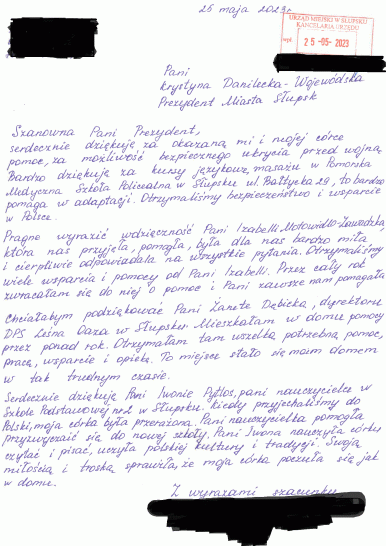 25 maja 2023r.
URZĄD MIEJSKI W SŁUPSKU
KANCELARIA URZĘDU
wpł. 25 -05- 2023
Pani
Krystyna Danilecka-Wojewódzka
Prezydent Miasta Słupsk
Szanowna Pani Prezydent,
serdecznie dziękuję za okazaną mi i mojej córce
pomoc, za możliwość bezpiecznego ukrycia przed wojną
Bardzo dziękuję za kursy językowe, masażu w Pomorska
Medyczna Szkoła Policealna w Słupsku ul. Bałtycka 29, to bardzo
pomaga w adaptacji. Otrzymaliśmy bezpieczeństwo i wsparcie
w Polsce.
Pragnę wyrazić wdzięczność Pani Izabelli Motowidło-Zawadzka,
która nas przyjęła, pomogła, była dla nas bardzo miła
i cierpliwie odpowiadała na wszystkie pytania. Otrzymaliśmy
wiele wsparcia i pomocy od Pani Izabelli. Przez cały rok
zwracałam się do niej o pomoc i Pani zawsze nam pomagała
Chciałabym podziękować Pani Żanete Dębicka, dyrektoru
DPS Leśna Oaza w Słupsku. Mieszkałam w domu pomocy
przez ponad rok. Otrzymałam tam wszelką potrzebną pomoc,
pracę, wsparcie i opiekę. To miejsce stało się moim domem
w tak trudnym czasie.
Serdecznie dziękuję Pani Iwonie Pytlos, pani nauczycielce w
Szkole Podstawowej nr 2 w Słupsku. Kiedy przyjechaliśmy do
Polski, moja córka była przerażona. Pani nauczycielka pomogła
przyzwyczaić się do nowej szkoły. Pani Iwona nauczyła córkę
czytać i pisać, uczyła polskiej kultury i tradycji. Swoją
miłością i troską sprawiła, że moja córka poczuła się jak
w domu.
Z wyrazami szacunku